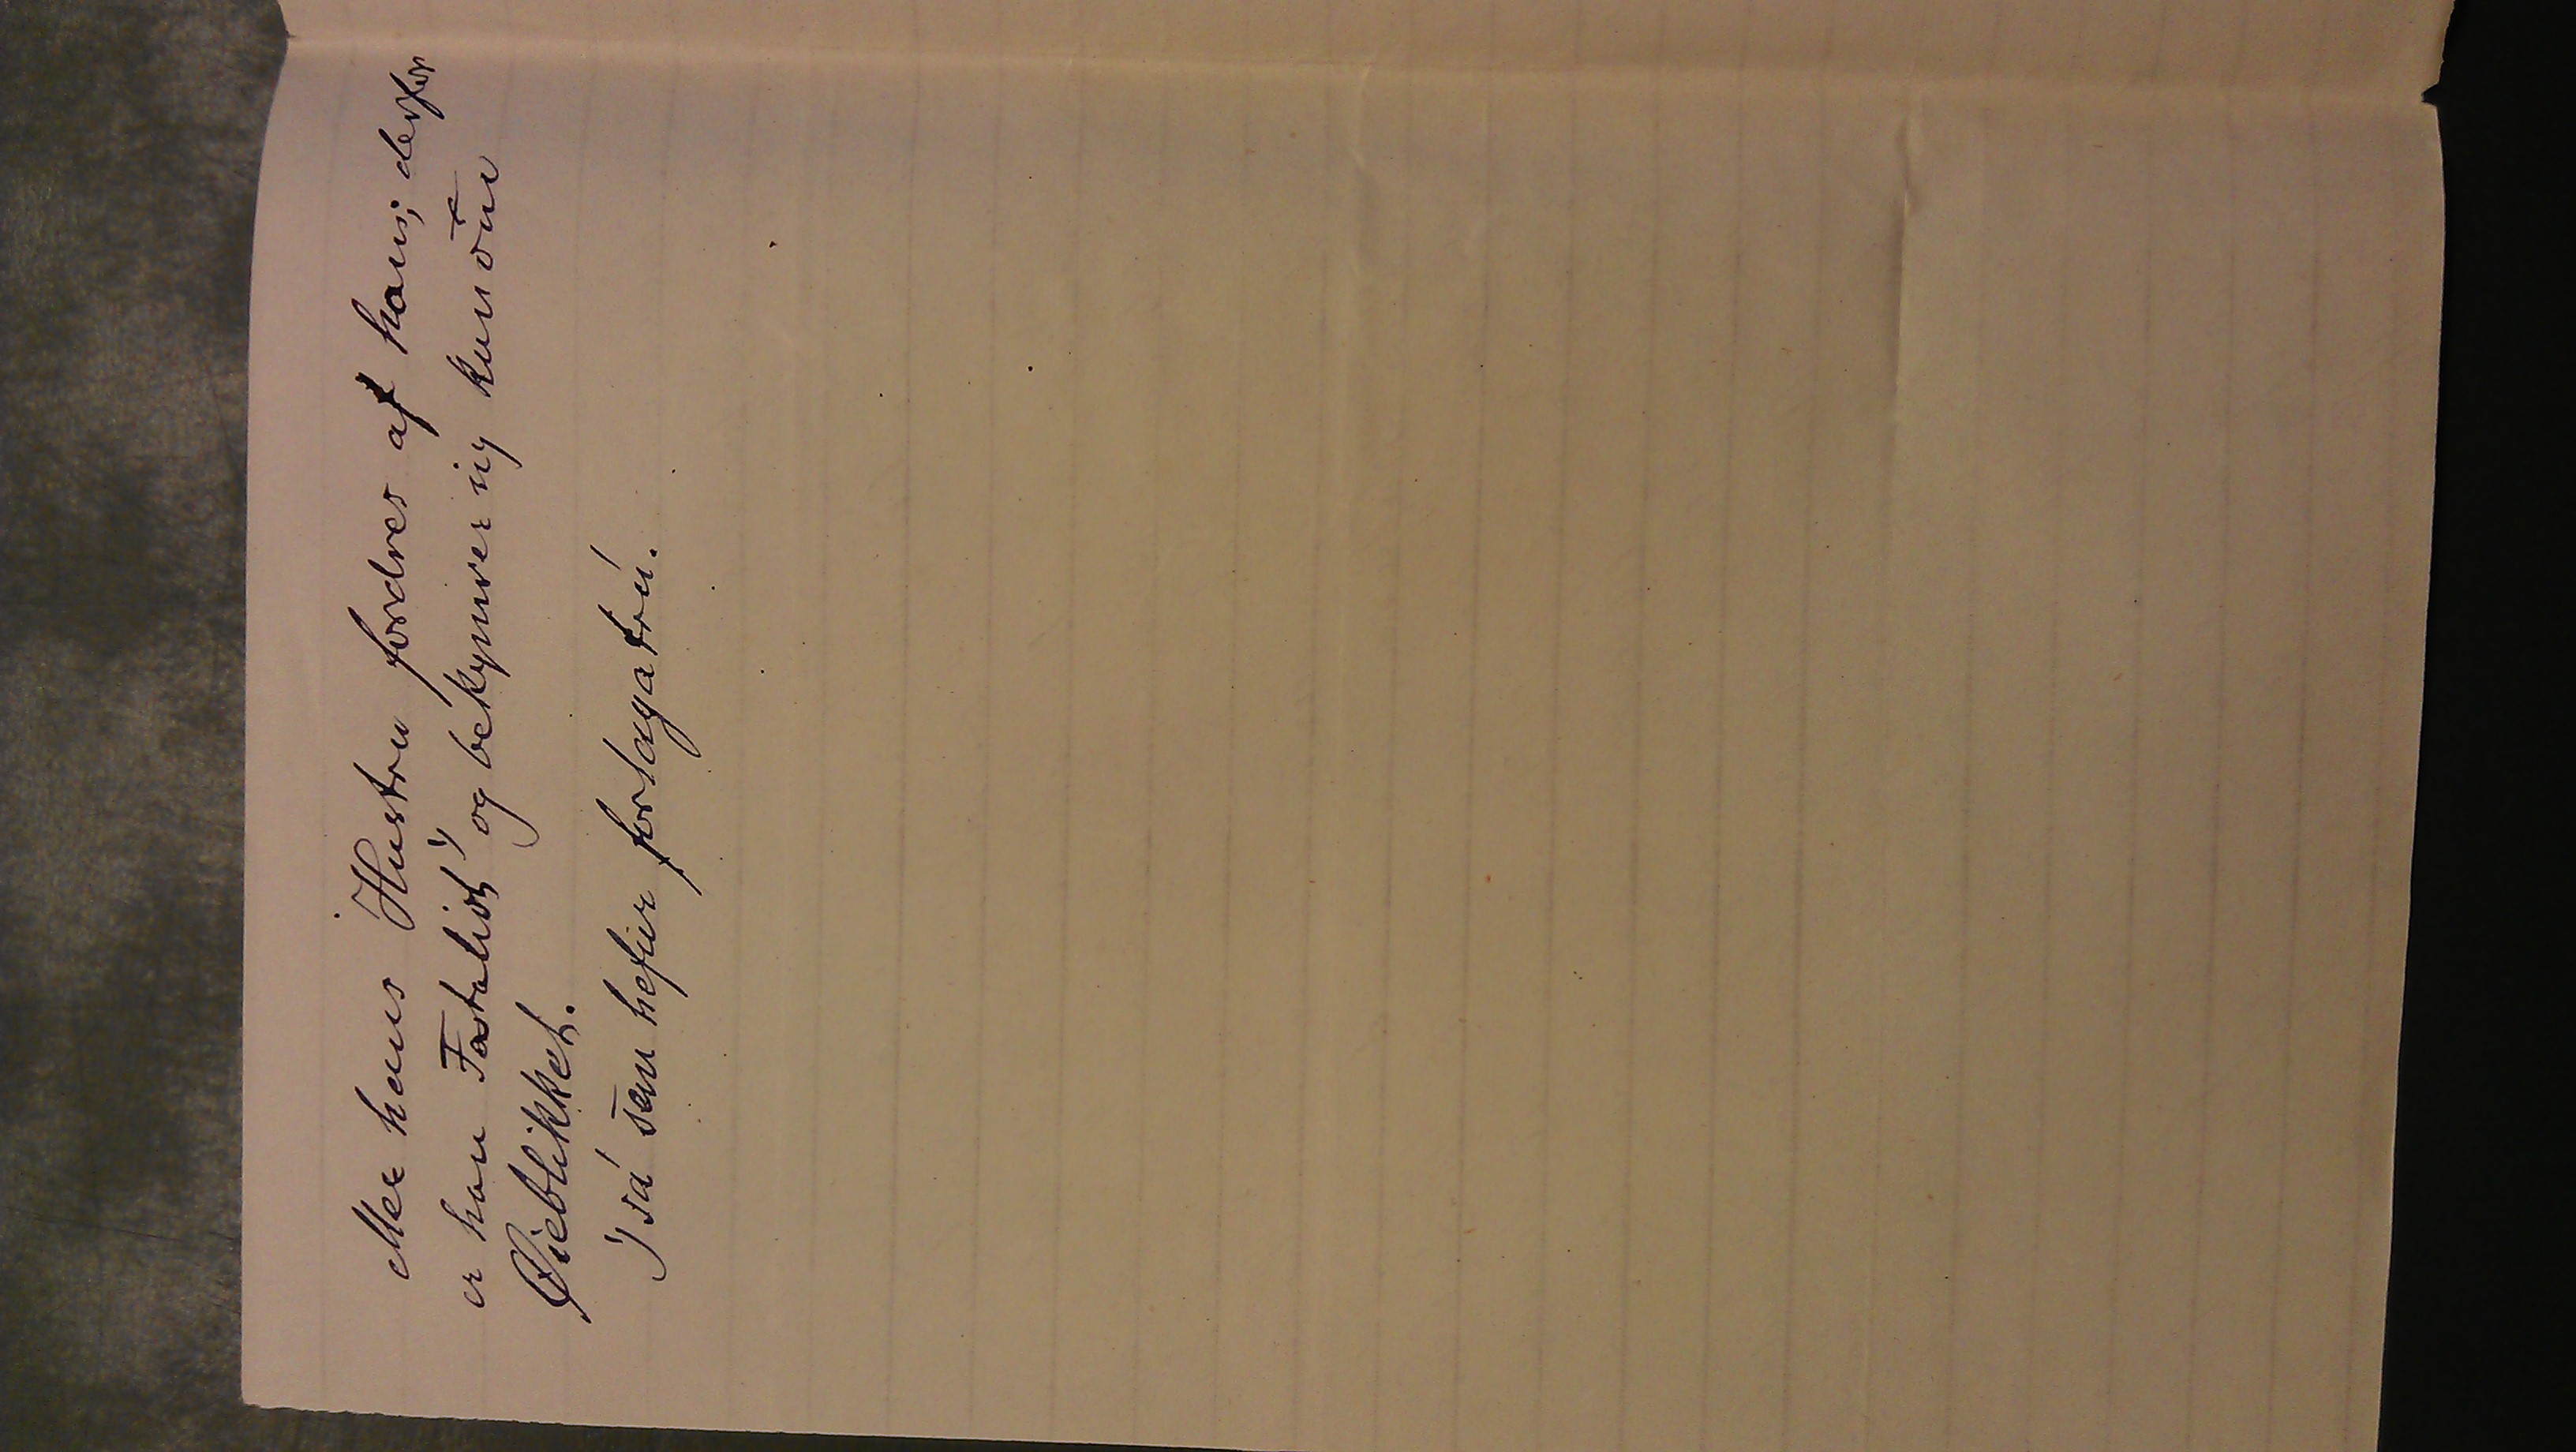 eller hans Hustru fordres af ham; derfor
er han Fatalist ¹⁾ og bekymrer sig kun om
Øieblikket.
¹⁾ sá sem hefur forlagatrú.